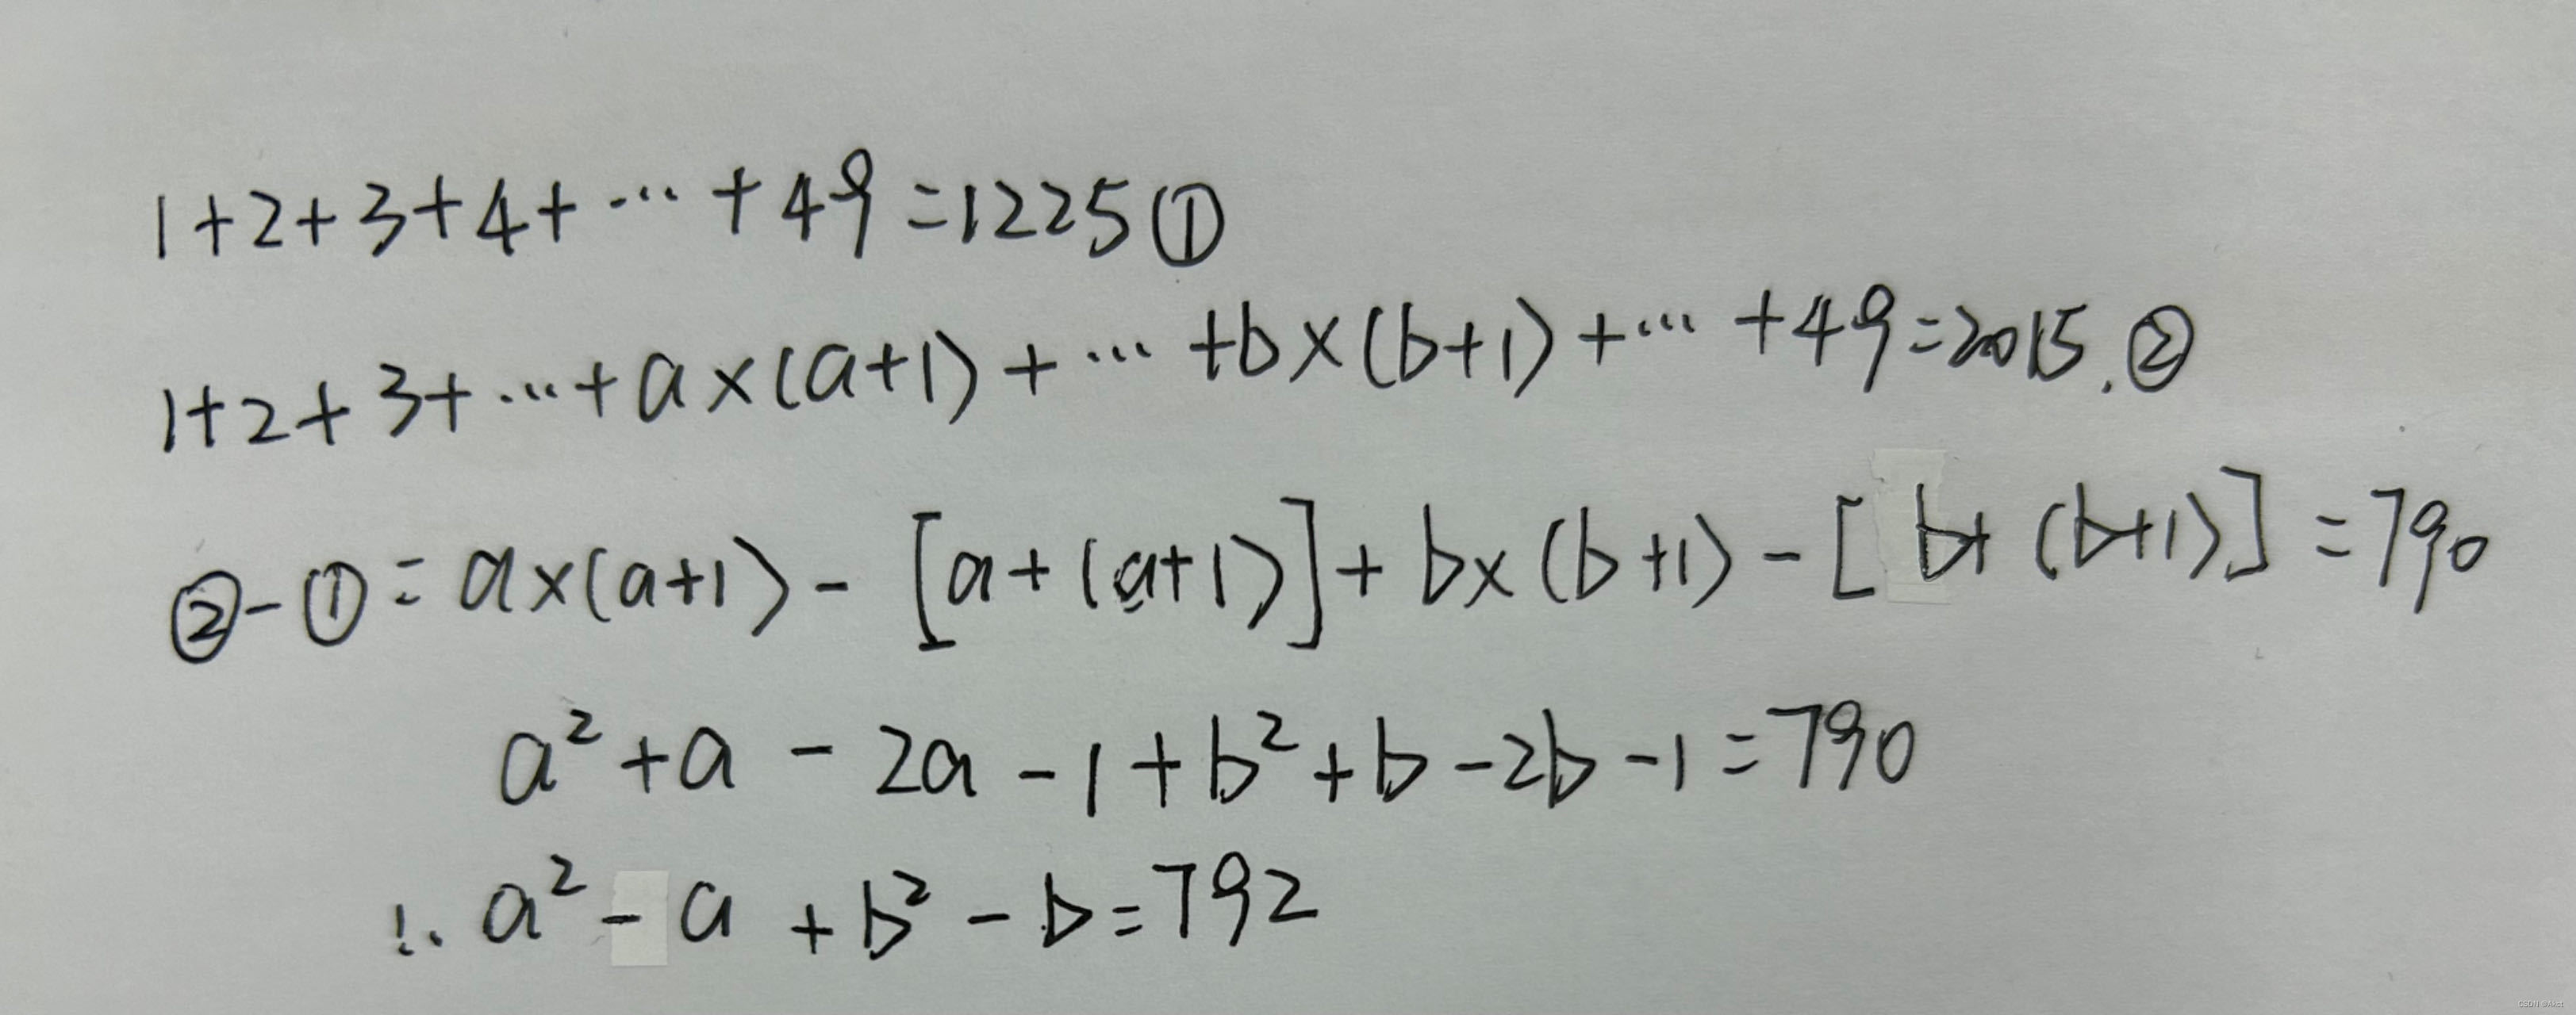 1+2+3+4+…+49=1225①
1+2+3+…+a×(a+1)+…+b×(b+1)+…+49=2015.②
②-①=a×(a+1)-[a+(a+1)]+b×(b+1)-[b+(b+1)]=790
a²+a-2a-1+b²+b-2b-1=790
∴a²-a+b²-b=792